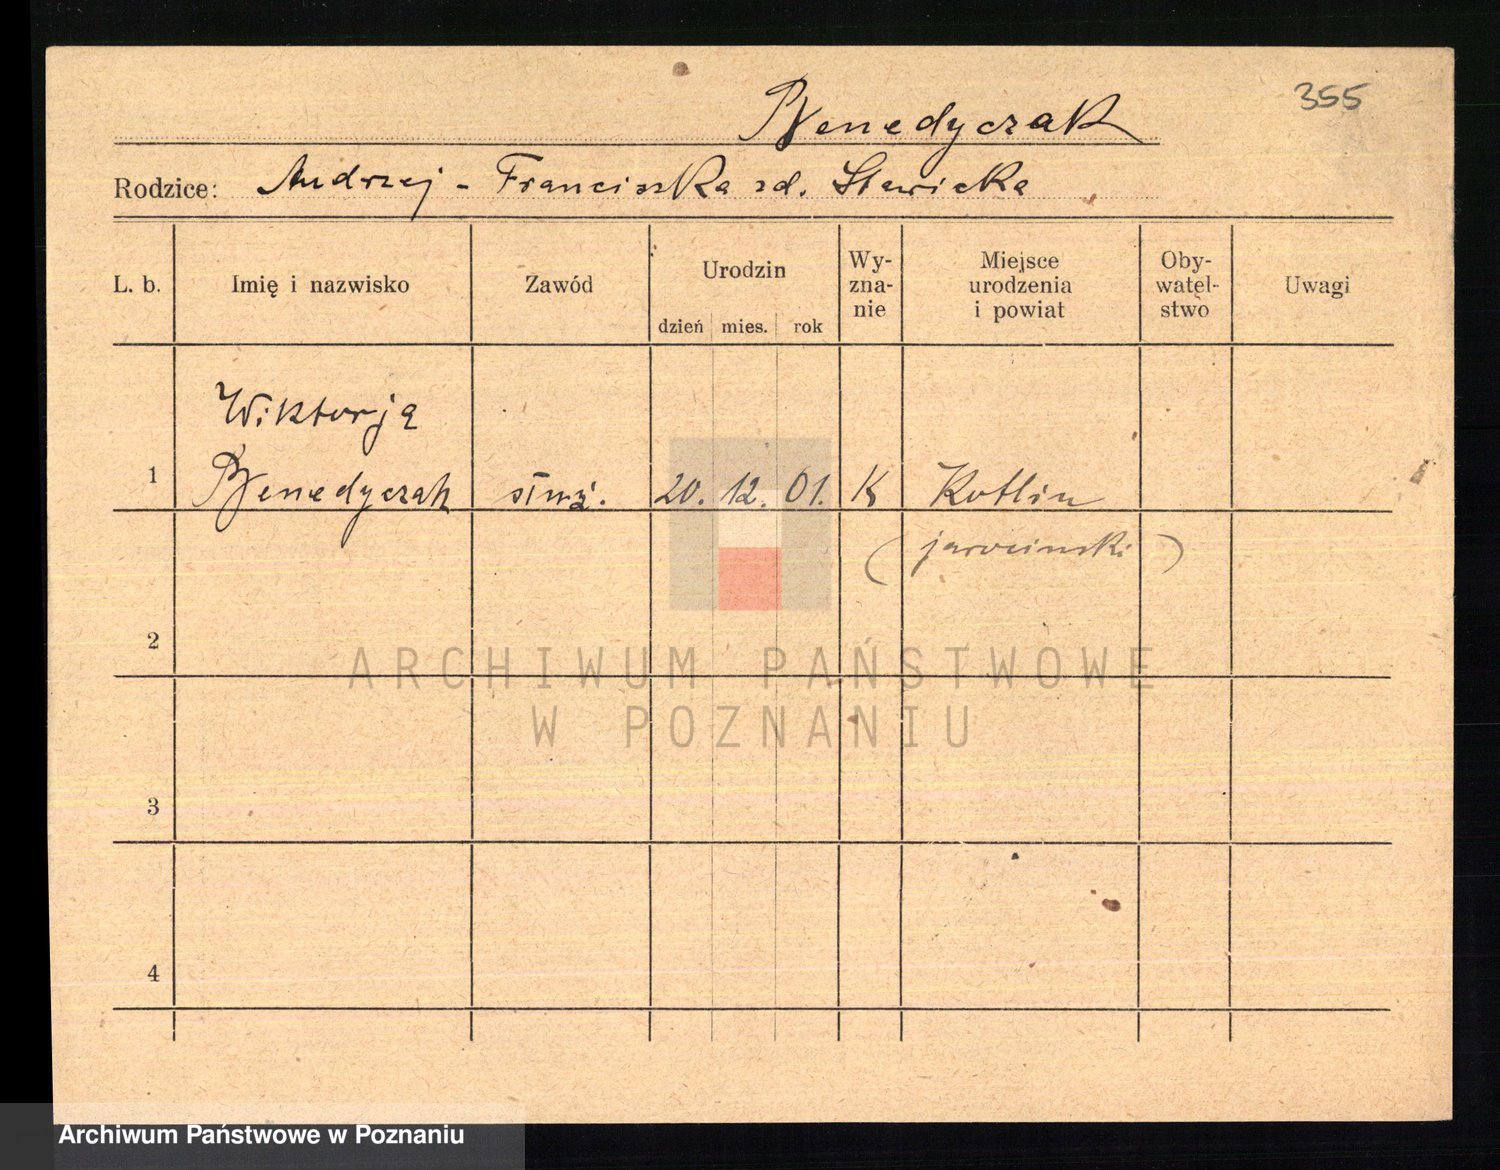 355
Benedyczak
Rodzice: Andrzej - Franciszka zd. Stawicka
L. b. Imię i nazwisko Zawód Urodzin Wy- Miejsce Oby- Uwagi
zna- urodzenia watel-
nie i powiat stwo
dzień mies. rok
Wiktorja
1 Benedyczak służ. 20. 12. 01. K Kotlin
(jarociński)
2
ARCHIWUM PAŃSTWOWE
W POZNANIU
3
4
Archiwum Państwowe w Poznaniu